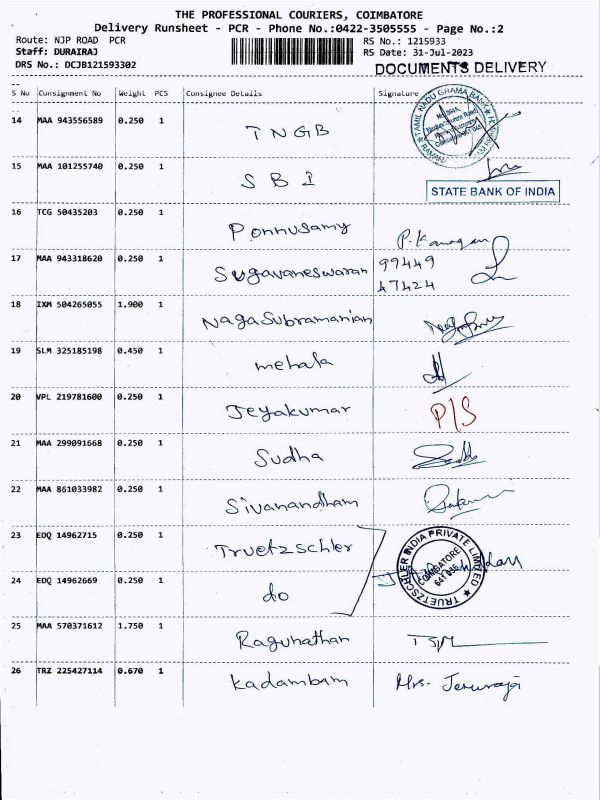 THE PROFESSIONAL COURIERS, COIMBATORE
Delivery Runsheet - PCR - Phone No.:0422-3505555 - Page No.:2
Route: NJP ROAD PCR
RS No.: 1215933
Staff: DURAIRAJ
RS Date: 31-Jul-2023
DRS No.: DCJB121593302
DOCUMENTS DELIVERY
S No Consignment No Weight PCS Consignee Details Signature
14 MAA 943556589 0.250 1 TNGB
TAMIL NADU GRAMA BANK
15 MAA 101255740 0.250 1 SBI
STATE BANK OF INDIA
16 TCG 50435203 0.250 1 Ponnusamy
17 MAA 943318620 0.250 1 Sugavaneswaran 99449
47424
18 IXM 504265055 1.900 1 NagaSubramanian
19 SLM 325185198 0.450 1 mehala
20 VPL 219781600 0.250 1 Jeyakumar P/S
21 MAA 299091668 0.250 1 Sudha
22 MAA 861033982 0.250 1 Sivanandham
23 EDQ 14962715 0.250 1 Truetzschler
TRUETZSCHLER INDIA PRIVATE LIMITED
COIMBATORE
24 EDQ 14962669 0.250 1 do
25 MAA 570371612 1.750 1 Ragunathan
26 TRZ 225427114 0.670 1 Kadambam Mrs.